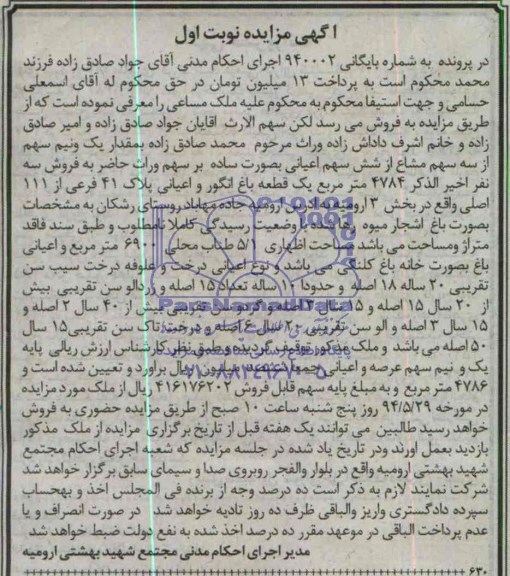 آگهی مزایده نوبت اول
در پرونده به شماره بایگانی ۹۴۰۰۰۲ اجرای احکام مدنی آقای جواد صادق زاده فرزند
محمد محکوم است به پرداخت ۱۳ میلیون تومان در حق محکوم له آقای اسمعلی
حسامی و جهت استیفا محکوم به محکوم علیه ملک مساعی را معرفی نموده است که از
طریق مزایده به فروش می رسد لکن سهم الارث اقایان جواد صادق زاده و امیر صادق
زاده و خانم اشرف داداش زاده وراث مرحوم محمد صادق زاده بمقدار یک ونیم سهم
از سه سهم مشاع از شش سهم اعیانی بصورت ساده بر سهم وراث حاضر به فروش سه
نفر اخیر الذکر ۴۷۸۴ متر مربع یک قطعه باغ انگور و اعیانی پلاک ۴۱ فرعی از ۱۱۱
اصلی واقع در بخش ۳ ارومیه به آدرس ارومیه جاده مهاباد روستای رشکان به مشخصات
بصورت باغ اشجار میوه رها شده با وضعیت رسیدگی کاملا نامطلوب و طبق سند فاقد
متراژ ومساحت می باشد مساحت اظهاری ۵/۱ طناب محلی ۶۹۰۰ متر مربع و اعیانی
باغ بصورت خانه باغ کلنگی می باشد و نوع اعیانی درخت و علوفه درخت سیب سن
تقریبی ۲۰ ساله ۱۸ اصله و حدودا ۱۰ ساله تعداد ۱۵ اصله و زردالو سن تقریبی بیش
از ۲۰ سال ۱۵ اصله و ۱۵ سال ۳ اصله و گردو سن تقریبی بیش از ۴۰ سال ۲ اصله و
۱۵ سال ۳ اصله و الو سن تقریبی ۲۰ سال ۶ اصله و درخت تاک سن تقریبی ۱۵ سال
۵۰ اصله می باشد و ملک مذکور توقیف گردیده و طبق نظر کارشناس ارزش ریالی پایه
یک و نیم سهم عرصه و اعیانی جمعا میلیون ریال براورد و تعیین شده است و
۴۷۸۶ متر مربع و به مبلغ پایه سهم قابل فروش ۴۱۶۱۷۶۲۰۲ ریال از ملک مورد مزایده
در مورخه ۹۴/۵/۲۹ روز پنج شنبه ساعت ۱۰ صبح از طریق مزایده حضوری به فروش
خواهد رسید طالبین می توانند یک هفته قبل از تاریخ برگزاری مزایده از ملک مذکور
بازدید بعمل آورند ودر تاریخ یاد شده در جلسه مزایده که شعبه اجرای احکام مجتمع
شهید بهشتی ارومیه واقع در بلوار والفجر روبروی صدا و سیمای سابق برگزار خواهد شد
شرکت نمایند لازم به ذکر است ده درصد وجه از برنده فی المجلس اخذ و بهحساب
سپرده دادگستری واریز والباقی ظرف ده روز تادیه خواهد شد در صورت انصراف و یا
عدم پرداخت الباقی در موعهد مقرر ده درصد اخذ شده به نفع دولت ضبط خواهد شد
مدیر اجرای احکام مدنی مجتمع شهید بهشتی ارومیه
۶۳۰
ParsNamadData